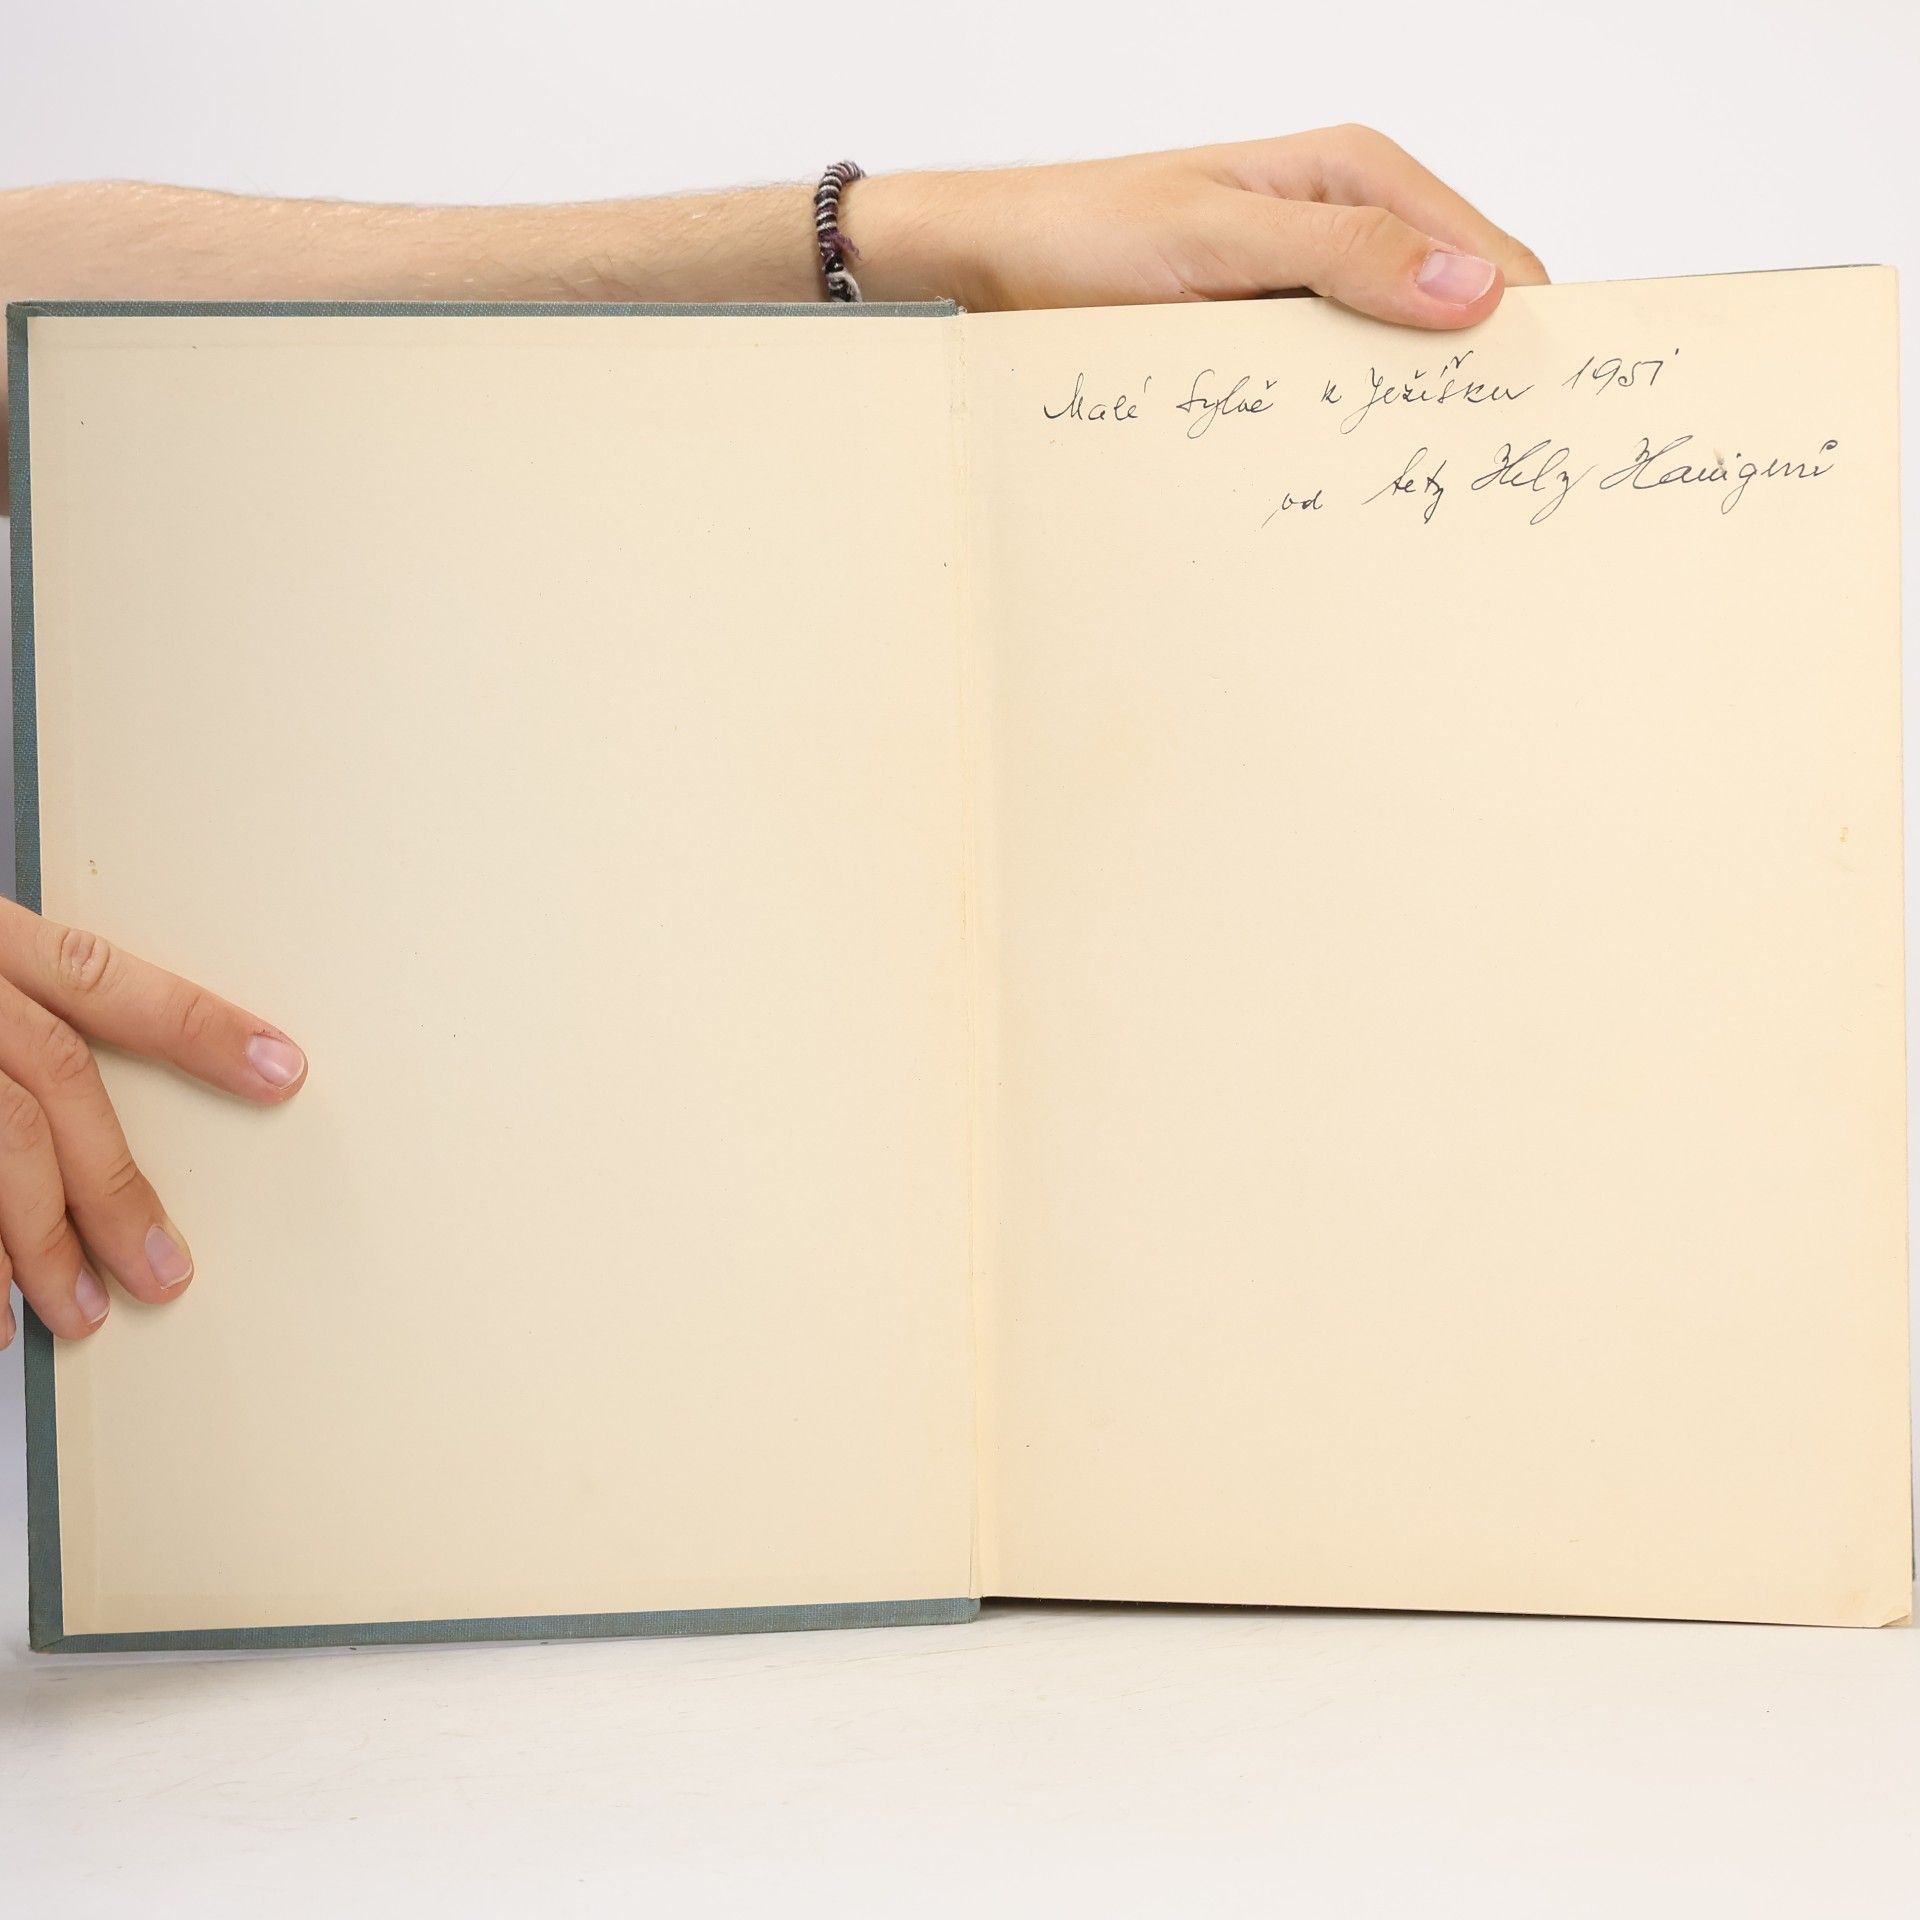 Malé Sylvě k Ježíšku 1951
od tety Hely